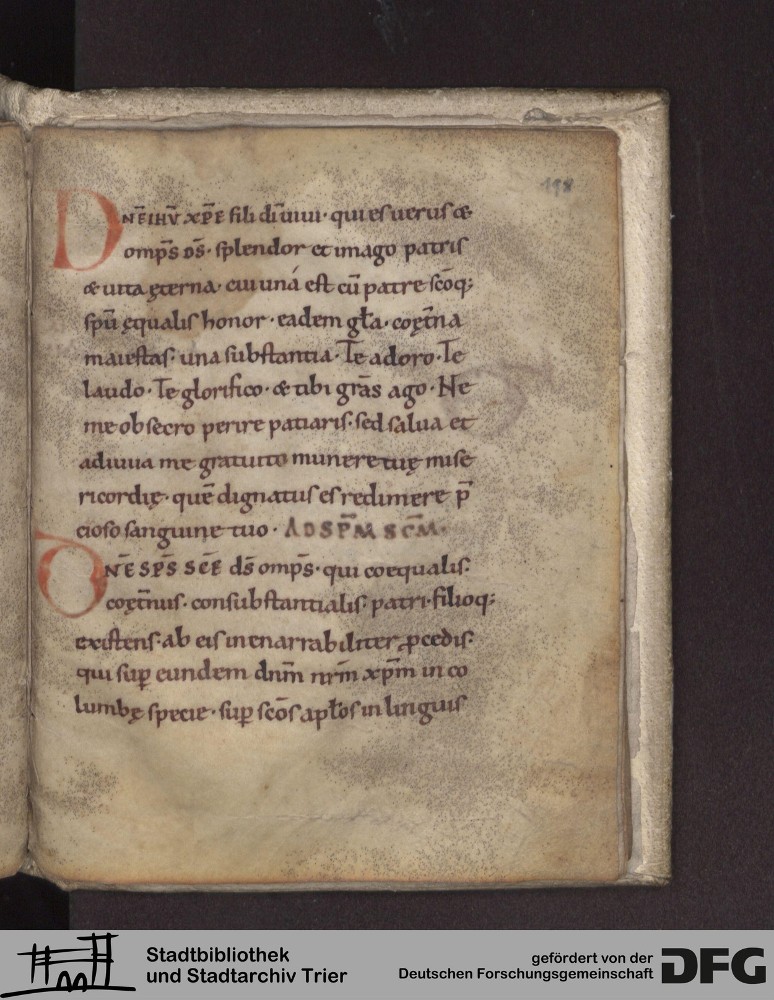 198
DNĒ IHŪ XP̄E fili dī uiui · qui es uerus &
omp̄s d̄s · splendor et imago patris
& uita ęterna · cui una est cū patre scōq;
spū ęqualis honor · eadem gła · coęt̄na
maiestas · una substantia · Te adoro · Te
laudo · Te glorifico · & tibi grās ago · Ne
me obsecro perire patiaris · sed salua et
adiuua me gratuito munere tuę mise
ricordię · quē dignatus es redimere p̄
cioso sanguine tuo · AD SPM̄ SCM̄ ·
DNĒ SPS̄ SCĒ ds̄ omp̄s · qui coequalis ·
coęt̄nus · consubstantialis patri · filioq;
existens · ab eis inenarrabiliter ꝓcedis ·
qui suꝑ eundem dnm̄ nrm̄ xpm̄ in co
lumbę specie · suꝑ scōs apłos in linguis
Stadtbibliothek
und Stadtarchiv Trier
gefördert von der
Deutschen Forschungsgemeinschaft
DFG